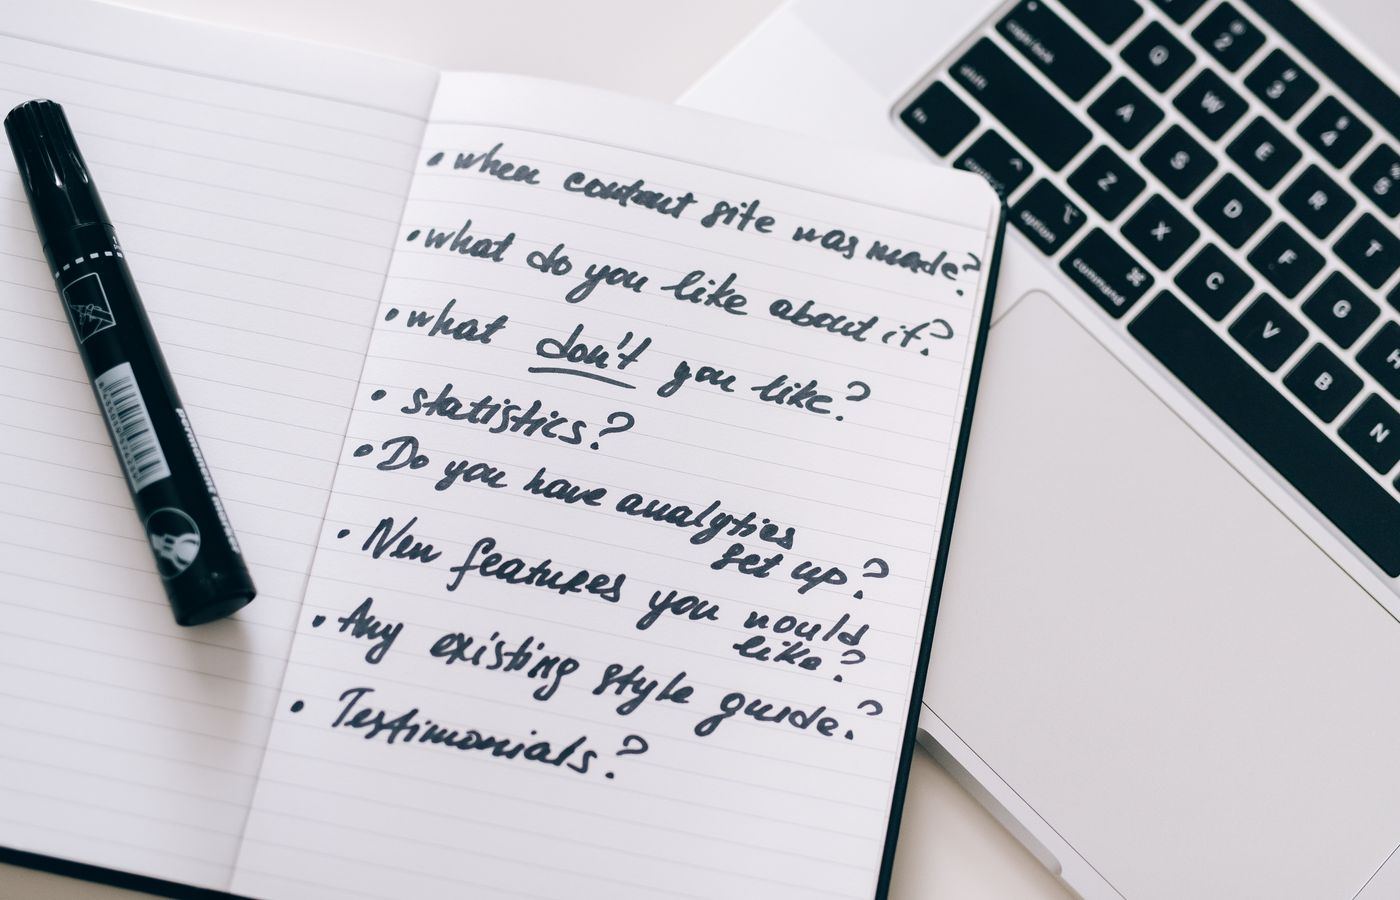 • when content site was made?
• what do you like about it?
• what don't you like?
• statistics?
• Do you have analytics
set up?
• New features you would
like?
• Any existing style guide?
• Testimonials?
permanent marker
2 # 3 $ 4 % 5
Q W E R T
caps lock A S D F G H
shift Z X C V B N
fn control option command